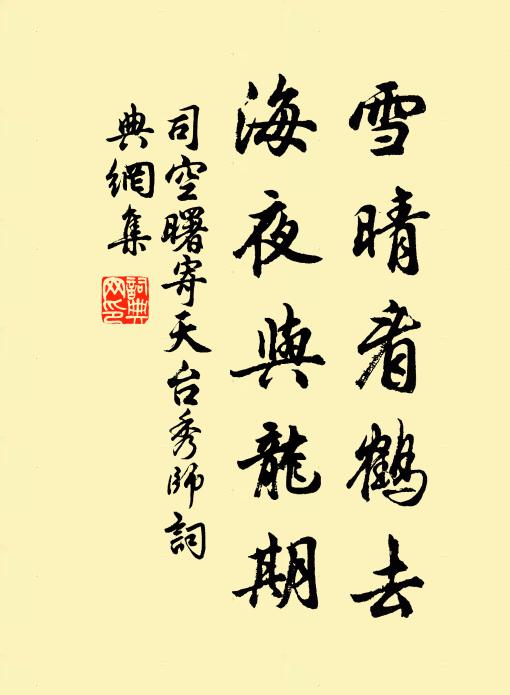 雪晴看鶴去
海夜與龍期
司空曙寄天台秀師詞
典網集
詞典網印